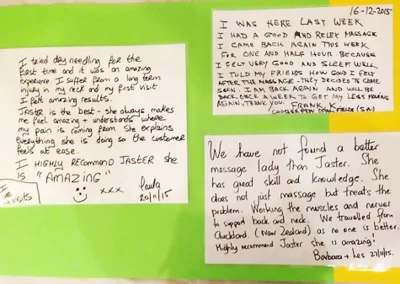 I tried dry needling for the
first time and it was an amazing
experience. I suffer from a long term
injury in my neck and my first visit
I felt amazing results.
JASTER is the best - she always makes
me feel amazing + understands where
my pain is coming from. She explains
everything she is doing so the customer
feels at ease.
I HIGHLY RECOMMEND JASTER she
is "AMAZING"
xxx Paula
20/11/15
visits
16-12-2015
I WAS HERE LAST WEEK
I HAD A GOOD AND RELEY MASSAGE
I CAME BACH AGAIN THIS WEEK
FOR ONE AND HALF HOUR BECAUSE
I FELT VERY GOOD AND SLEEP WELL
I TOLD MY FRIENDS HOW GOOD I FELT
AFTER THE MASSAGE - THEY DECIDED TO COME
SOON. I AM BACK AGAIN AND WILL BE
BACK ONCE A WEEK TO GET MY LEGS
AGAIN. THANK YOU FRANK.K
(SA)
We have not found a better
massage lady than Jaster. She
has great skill and knowledge. She
does not just massage but treats the
problem. Working the muscles and nerves
to support back and neck. We travelled from
Auckland. (New Zealand) as no one is better.
Highly recommend Jaster she is amazing!
Barbara + Les 27/11/15.